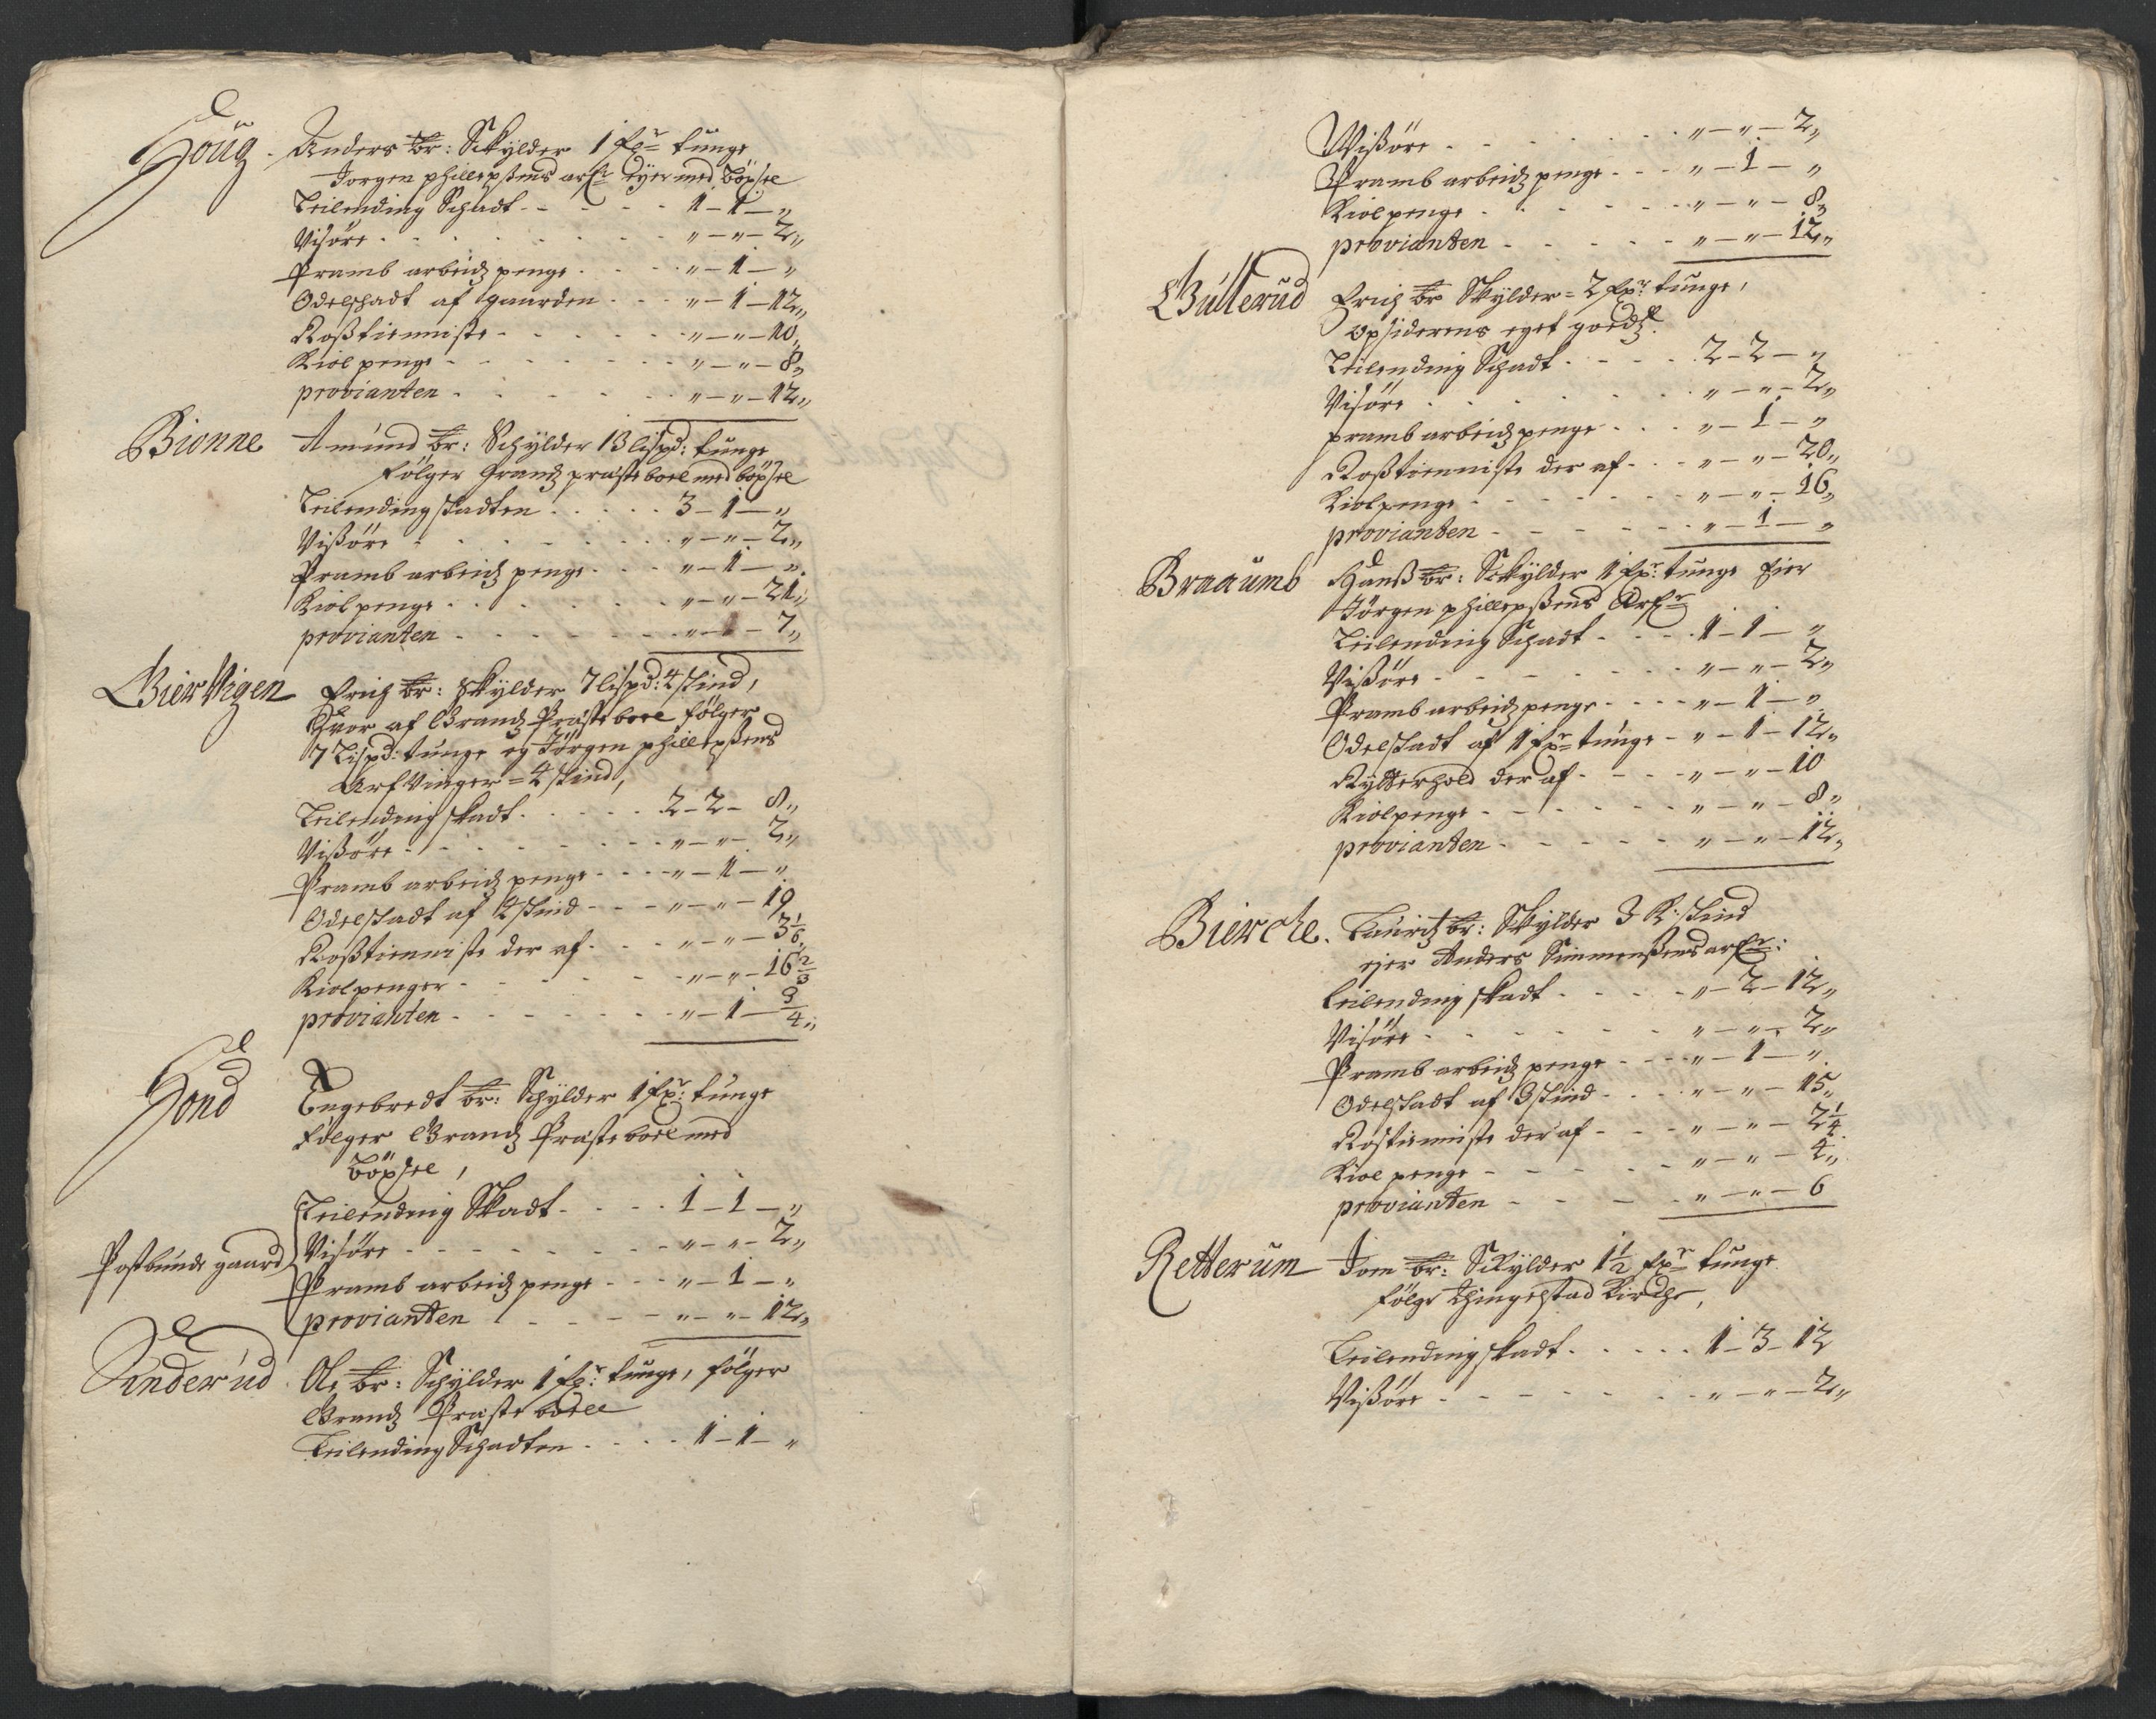 Houg. Anders br: Skylder 1 fpr tunge
Jorgen phillepßens arfr eyer med böxsel
Leilending Schadt - - - - 1 - 1 - „
Visøre - - - - „ - „ - 2„
Pramb arbeidz penge - - - „ - 1 - „
Odelschadt af gaarden - - - „ - 1 - 12„
Roßtienniste - - - - „ - „ - 10„
Kiol penge - - - - „ - „ - 8„
provianten - - - - „ - „ - 12„
Bionne Amund br: Schylder 13 lispd: tunge
følger Grandz præsteboel med böxsel
Leilending skadten - - - - 3 - 1 - „
Vißøre - - - - „ - „ - 2„
Pramb arbeidz penge - - - „ - 1 - „
Kiol penge - - - - „ - „ - 21„
provianten - - - - „ - „ - 7„
BierVigen Erich br: Skylder 7 lispd: 4 skind,
Hvor af Grandz Præste boel følger
7 Lispd: tunge og Jørgen phillepßens
Arfvinger = 4 skind,
Leilending skadt - - - - 2 - 2 - 8„
Vißøre - - - - „ - „ - 2„
Pramb arbeidz penge - - - „ - 1 - „
Odelskadt af 4 skind - - - „ - „ - 19
Roßtienniste der af - - - „ - „ - 3 1/6
Kiolpenger - - - - „ - „ - 16 2/3
provianten - - - - „ - 1 - 3/4„
Hond Engebredt br: Schylder 1 fpr: tunge
følger Grandz Præste boel med
böxsel,
Leilending Skadt - - - - 1 - 1 - „
Visøre - - - - „ - „ - 2„
Postbunde gaard Pramb arbeidz penge - - - „ - 1 - „
provianten - - - - „ - „ - 12„
Anderud Ole br: Schylder 1 fpr: tunge, følger
Grandz Præste boell
Leilending Schadten - - - - 1 - 1 - „
Wißøre - - - - „ - „ - 2„
Pramb arbeidz penge - - - „ - 1 - „
Kiolpenge - - - - „ - „ - 8„
provianten - - - - „ - „ - 12„
Bulterud Erich br Skylder = 2 fpr: tunge,
opsiderens eget goedz.
Leilending Schadt - - - - 2 - 2 - „
Visøre - - - - „ - „ - 2„
pramb arbeidz penge - - - „ - 1 - „
Roßtienniste der af - - - „ - „ - 20„
Kiolpenge - - - - „ - „ - 16„
provianten - - - - „ - 1 - „
Braaumb Hanß br: Skylder 1 fpr: tunge Eier
Jörgen phillepßens Arfr
Leilending Schadt - - - - 1 - 1 - „
Vißøre - - - - „ - „ - 2„
Pramb arbeidz penge - - - „ - 1 - „
Odelskadt af 1 fpr tunge - „ - 1 - 12„
Rytterhold der af - - - „ - „ - 10
Kiolpenge - - - - „ - „ - 8„
provianten - - - - „ - „ - 12„
Bierche. Lauridz br: Skylder 3 K: skind
ejer Anders Simmenßens arfr:
Leilending skadt - - - - „ - 2 - 12„
Visøre - - - - „ - „ - 2„
Pramb arbeidz penge - - - „ - 1 - „
Odelskadt af 3 skind - - - „ - „ - 15„
Rostienniste der af - - - „ - „ - 2 1/4
Kiol penge - - - - „ - „ - 4„
provianten - - - - „ - „ - 6
Retterum Joen br: Skylder 1 1/2 fpr tunge
følge Thingelstad Kirche,
Leilending skadt - - - - 1 - 3 - 12
Vißøre - - - - „ - „ - 2„